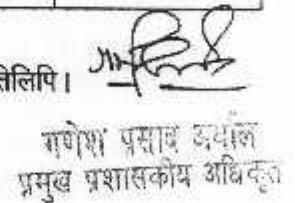 तिलिपि।
गणेश प्रसाद अर्याल
प्रमुख प्रशासकीय अधिकृत